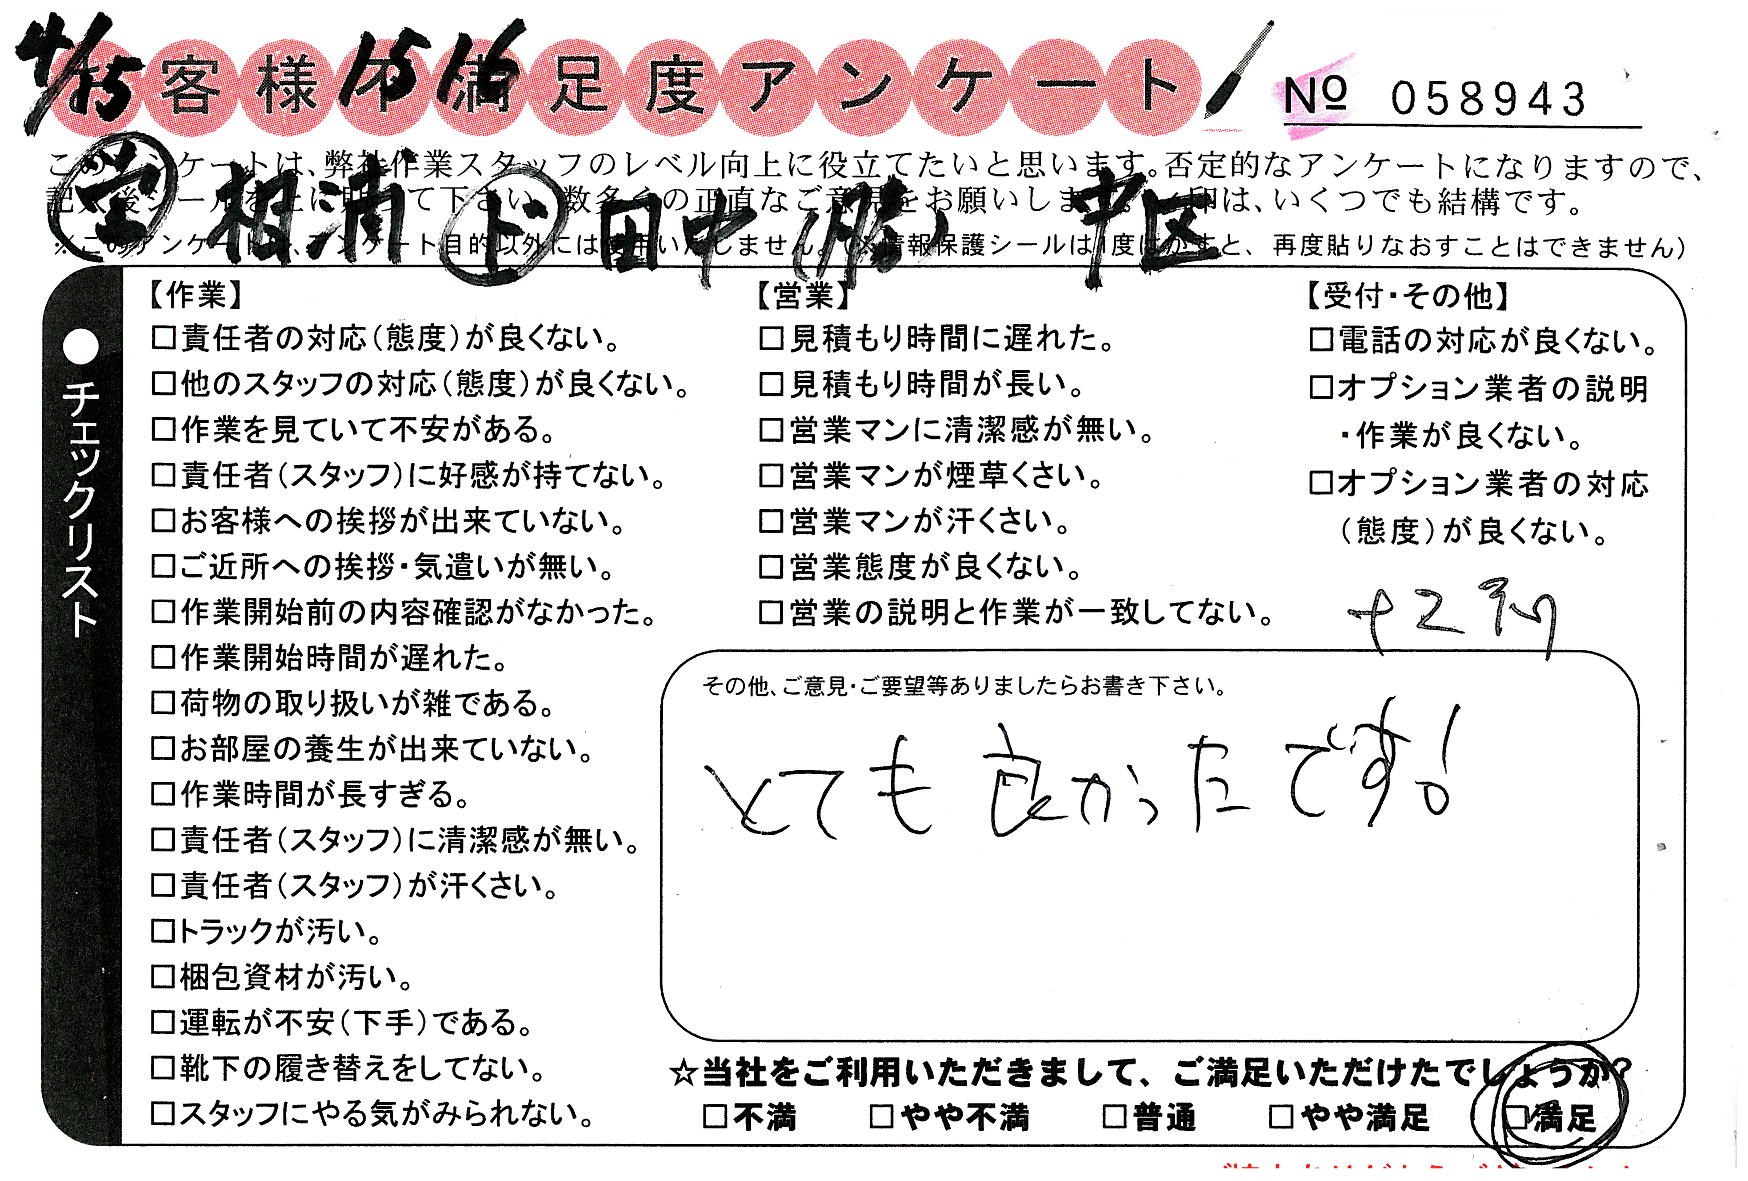 4/15 1516
お客様不満足度アンケート
№ 058943
このアンケートは、弊社作業スタッフのレベル向上に役立てたいと思います。否定的なアンケートになりますので、
記入後シールを上に貼って下さい。数多くの正直なご意見をお願いします。 印は、いくつでも結構です。
営 相浦 ド 田中 中区
※このアンケートは、アンケート目的以外には使用いたしません。(※情報保護シールは1度はがすと、再度貼りなおすことはできません)
●チェックリスト
【作業】
□責任者の対応(態度)が良くない。
□他のスタッフの対応(態度)が良くない。
□作業を見ていて不安がある。
□責任者(スタッフ)に好感が持てない。
□お客様への挨拶が出来ていない。
□ご近所への挨拶・気遣いが無い。
□作業開始前の内容確認がなかった。
□作業開始時間が遅れた。
□荷物の取り扱いが雑である。
□お部屋の養生が出来ていない。
□作業時間が長すぎる。
□責任者(スタッフ)に清潔感が無い。
□責任者(スタッフ)が汗くさい。
□トラックが汚い。
□梱包資材が汚い。
□運転が不安(下手)である。
□靴下の履き替えをしてない。
□スタッフにやる気がみられない。
【営業】
□見積もり時間に遅れた。
□見積もり時間が長い。
□営業マンに清潔感が無い。
□営業マンが煙草くさい。
□営業マンが汗くさい。
□営業態度が良くない。
□営業の説明と作業が一致してない。
【受付・その他】
□電話の対応が良くない。
□オプション業者の説明
・作業が良くない。
□オプション業者の対応
(態度)が良くない。
その他、ご意見・ご要望等ありましたらお書き下さい。
とても良かったです!
☆当社をご利用いただきまして、ご満足いただけたでしょうか?
□不満 □やや不満 □普通 □やや満足 □満足